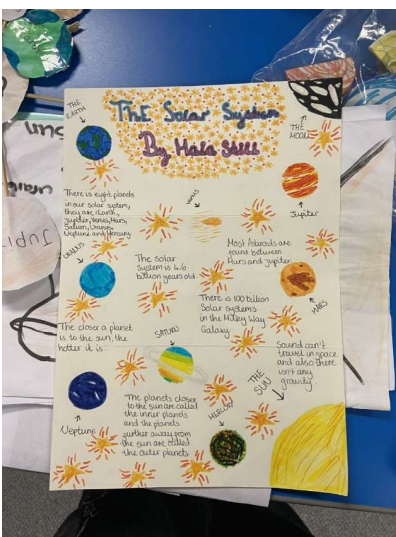 THE
EARTH
The Solar System
By Hala Shell
THE
MOON
Jupiter
There is eight planets
in our solar system,
they are Earth,
Jupiter, Venus, Mars,
Saturn, Uranus,
Neptune and Mercury
VENUS
Most Asteroids are
found between
Mars and Jupiter
URANUS
The solar
System is 4.6
billion years old.
MARS
There is 100 billion
Solar systems
in the Milky Way
Galaxy
The closer a planet
is to the sun, the
hotter it is.
SATURN
Sound can't
travel in space
and also there
isn't any
gravity
THE
SUN
Neptune
The planets closer
to the sun are called
the inner planets
and the planets
further away from
the sun are called
the outer planets
MERCURY
Sun
Jupi